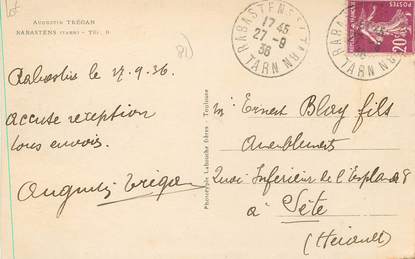 Augustin TRÉGAN
RABASTENS (TARN) - TÉL. 9
RABASTENS (TARN)
17 45
27-9
36
TARN
20
Rabastens le 27.9.36
accuse reception
tous envois.
Augustin Trégan
Phototypie Labouche frères - Toulouse
Mr Ernest Blay fils
Ameublements
Quai Inferieur de l'Esplanade 8
à Sète
(Hérault)